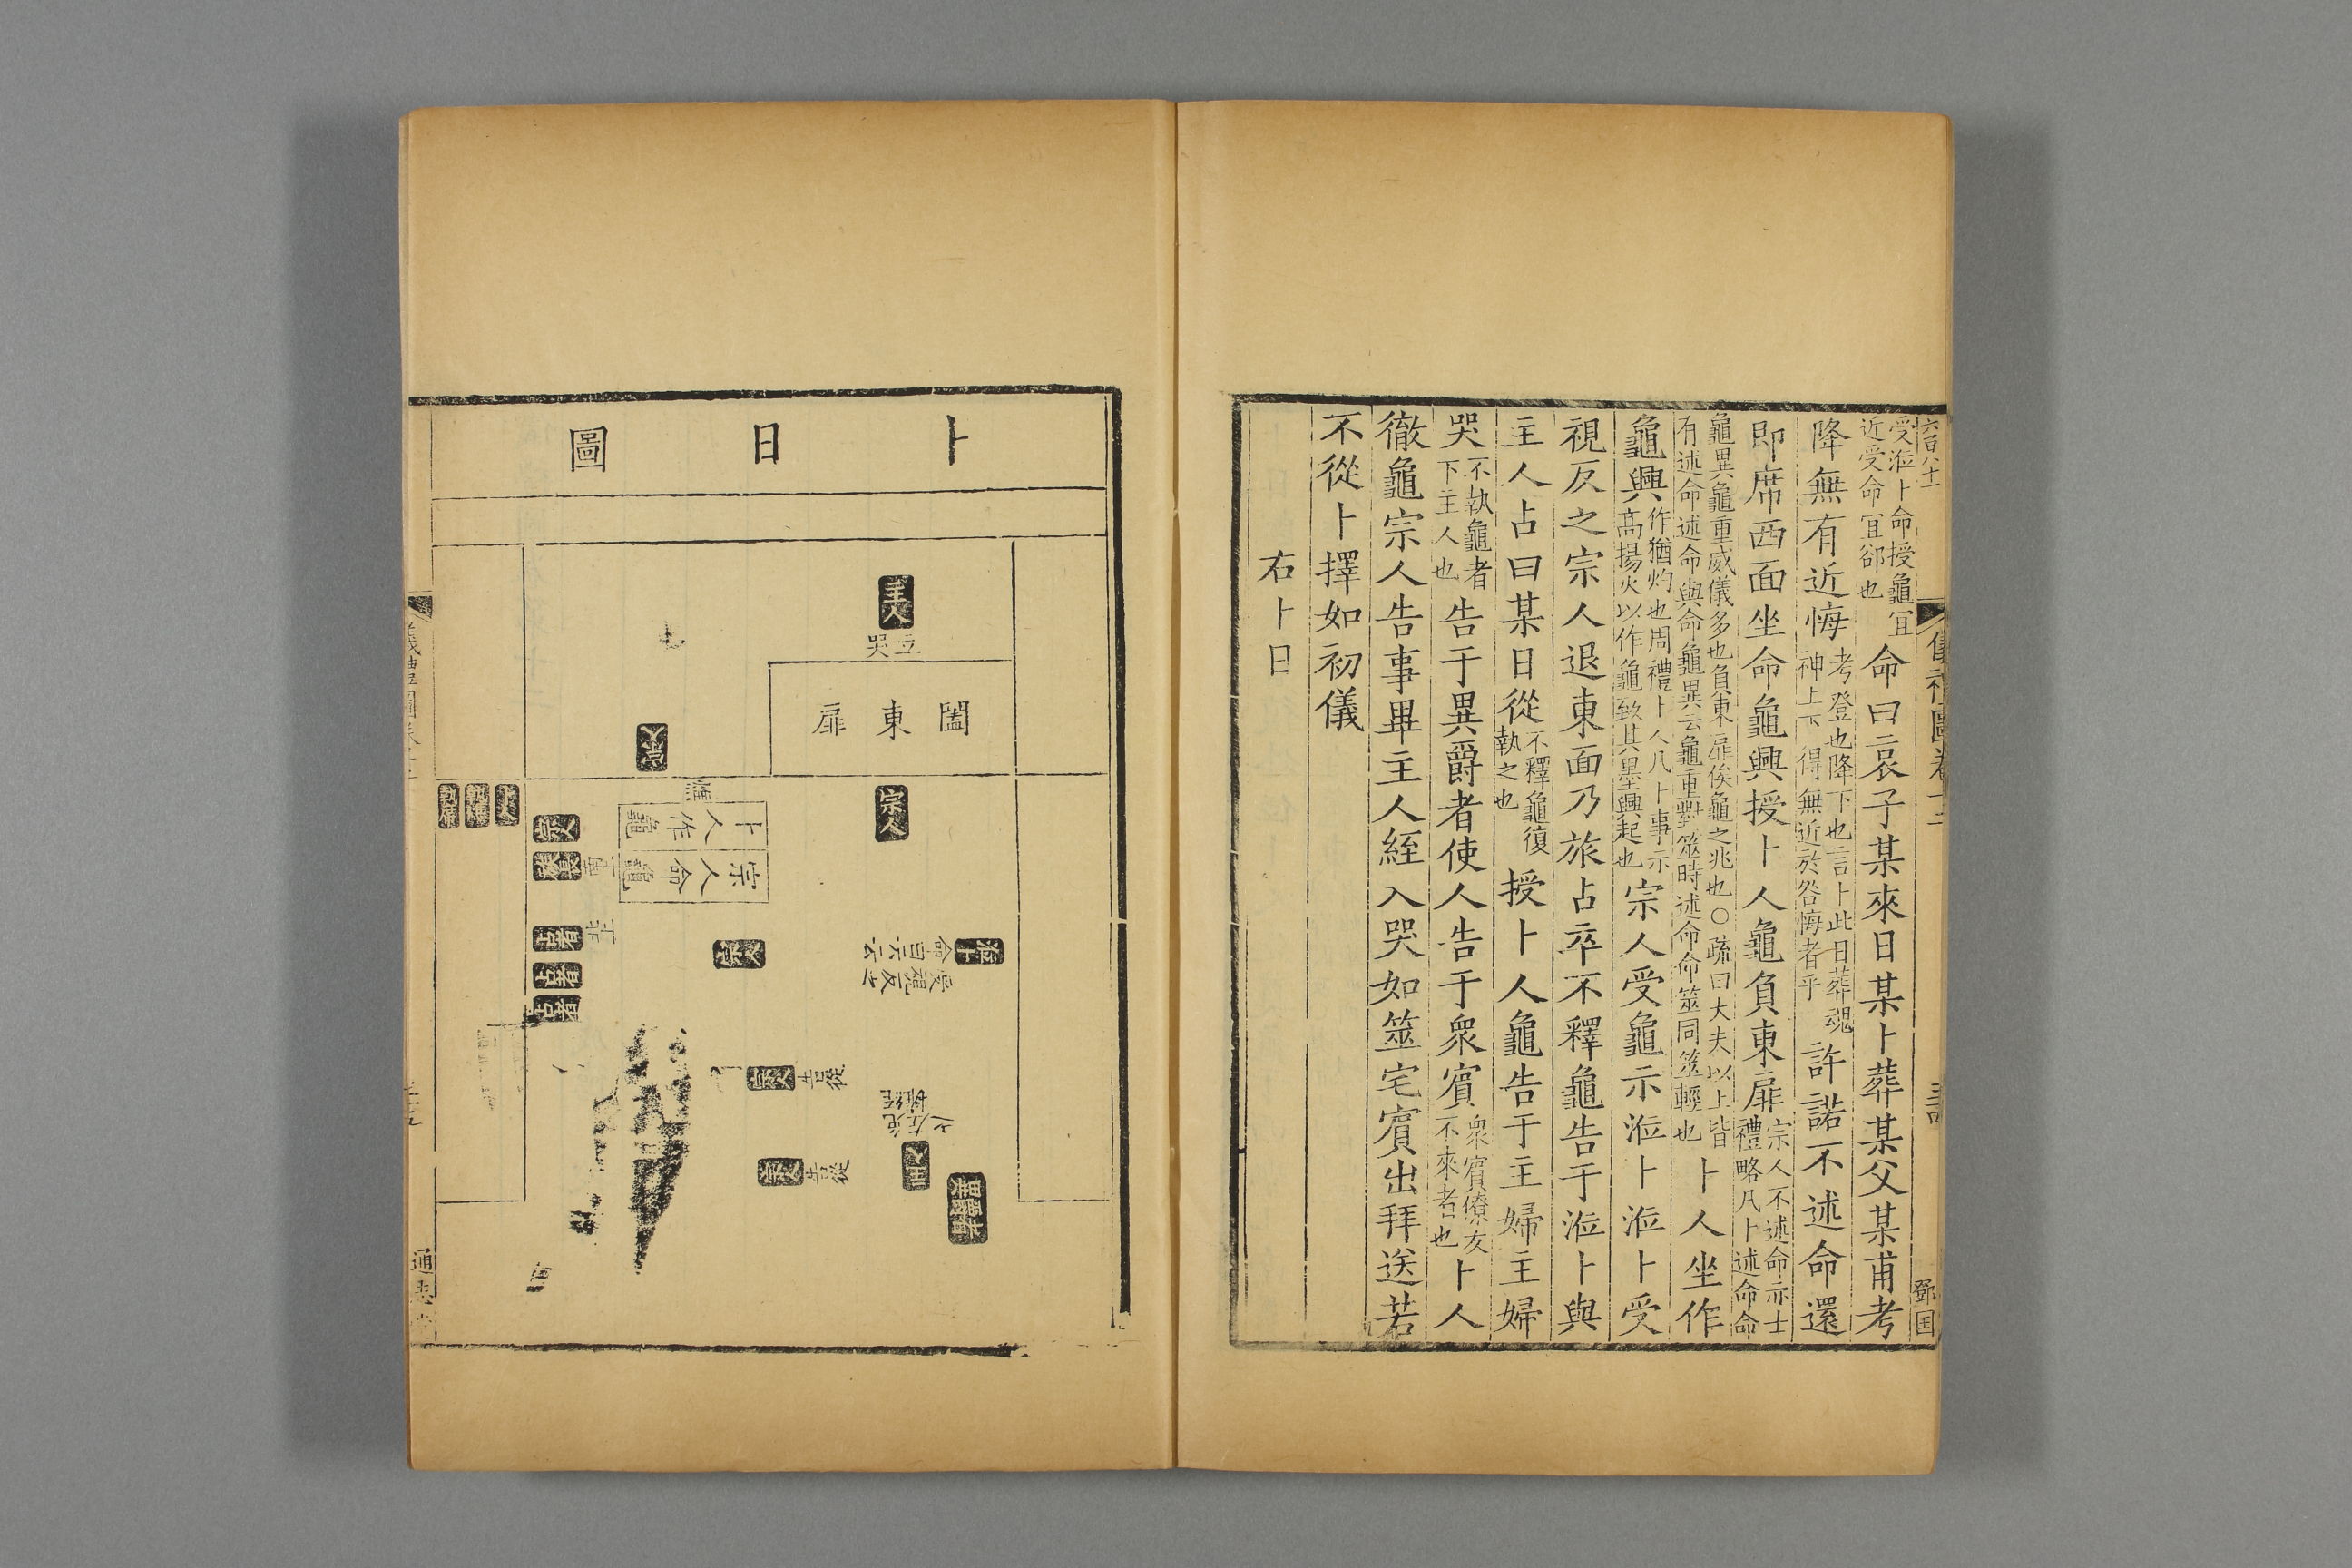 六百八十一
儀禮圖卷十二
三十四
鄧国
受涖卜命授龜宜
近受命宜郤也
命曰哀子某來日某卜葬某父某甫考
降無有近悔
考登也降下也言卜此日葬魂
神上下得無近於咎悔者乎
許諾不述命還
即席西面坐命龜興授卜人龜負東扉
宗人不述命亦士
禮略凡卜述命命
龜異龜重威儀多也負東扉俟龜之兆也○疏曰大夫以上皆
有述命述命與命龜異云龜重對筮時述命命筮同筮輕也
卜人坐作
龜興
作猶灼也周禮卜人凡卜事示
高揚火以作龜致其墨興起也
宗人受龜示涖卜涖卜受
視反之宗人退東面乃旅占卒不釋龜告于涖卜與
主人占曰某日從
不釋龜復
執之也
授卜人龜告于主婦主婦
哭
不執龜者
下主人也
告于異爵者使人告于衆賓
衆賓僚友
不來者也
卜人
徹龜宗人告事畢主人絰入哭如筮宅賓出拜送若
不從卜擇如初儀
右卜日
卜日圖
主人
立哭
闔東扉
宗人
宗人
卜人作龜
宗人命龜
卜人
宗人
占者
占者
占者
涖卜
受視反之
命曰云云
宗人
宗人
告從
宗人
告從
異爵者
儀禮圖卷十二
三十五
通志堂